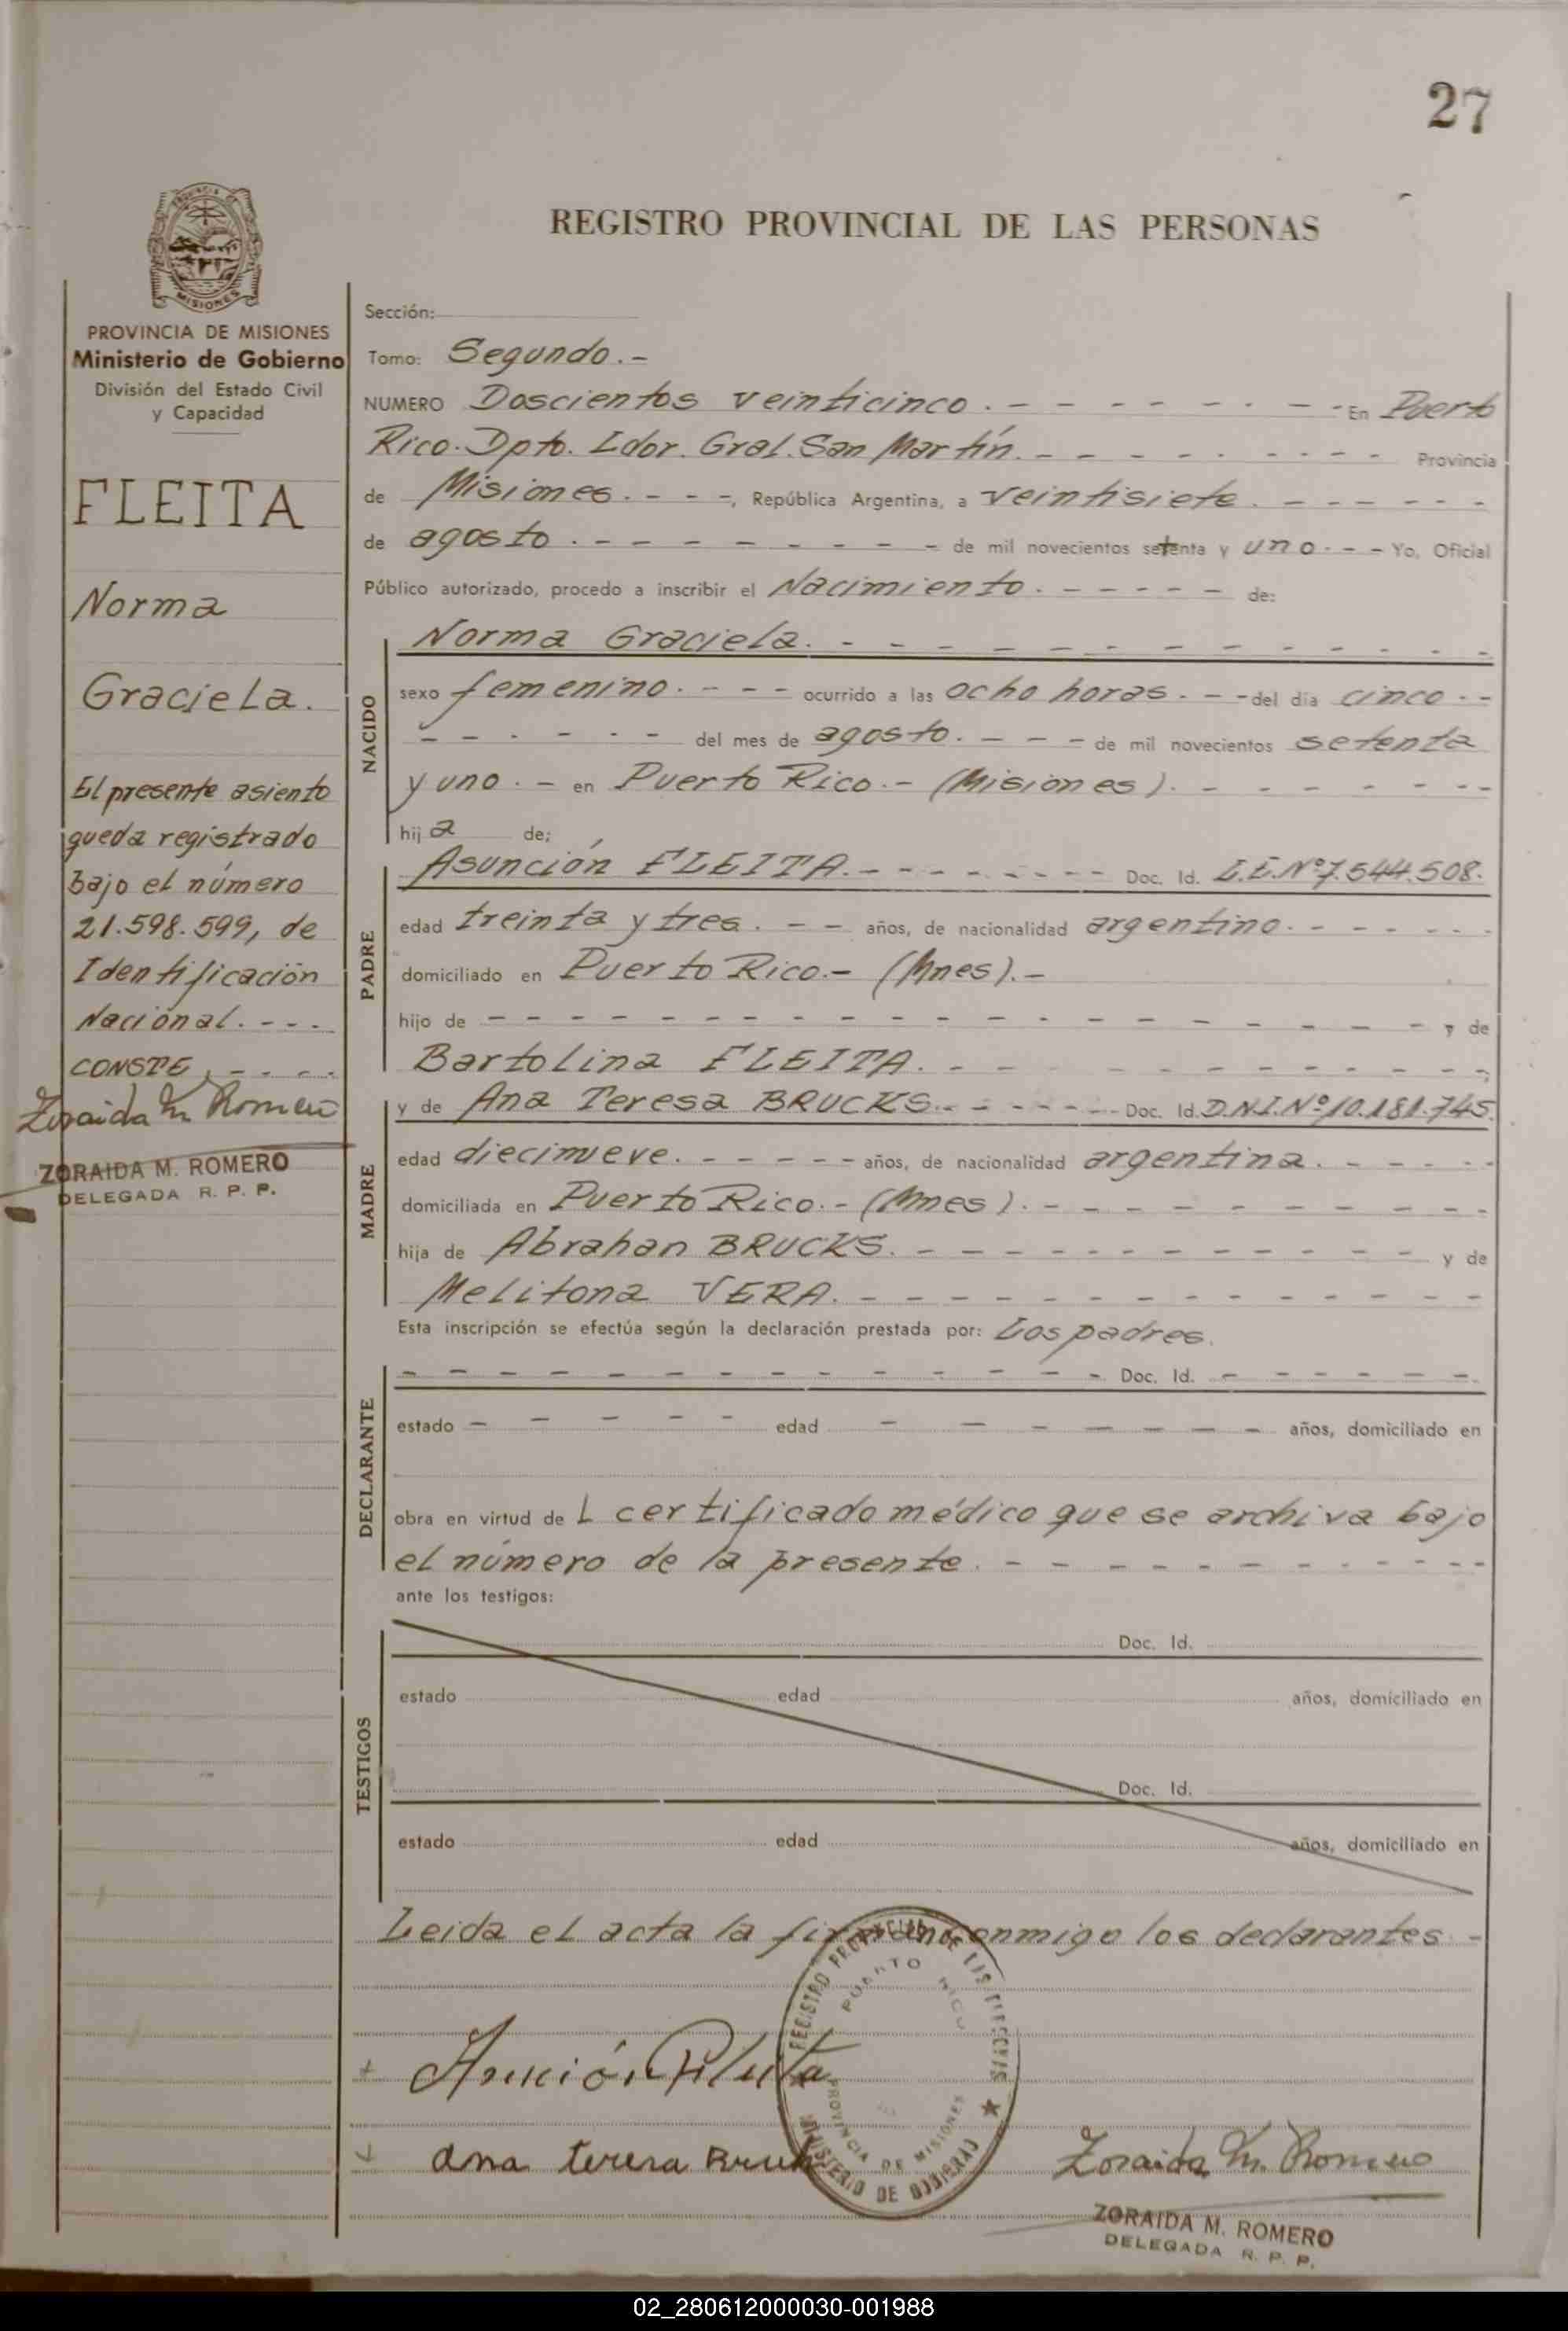 27
PROVINCIA
MISIONES
REGISTRO PROVINCIAL DE LAS PERSONAS
PROVINCIA DE MISIONES
Ministerio de Gobierno
División del Estado Civil
y Capacidad
FLEITA
Norma
Graciela.
El presente asiento
queda registrado
bajo el número
21.598.599, de
Identificación
Nacional. - - -
CONSTE, - - - -
Zoraida M. Romero
ZORAIDA M. ROMERO
DELEGADA R. P. P.
Sección:
Tomo: Segundo. -
NUMERO Doscientos veinticinco. - - - - - - - En Puerto
Rico. Dpto. Ldor. Gral. San Martín. - - - - - - - - Provincia
de Misiones. - - -, República Argentina, a veintisiete. - - - - - -
de agosto. - - - - - - - - de mil novecientos setenta y uno. - - Yo, Oficial
Público autorizado, procedo a inscribir el Nacimiento. - - - - - de:
NACIDO
Norma Graciela. - - - - - - - - - - - -
sexo femenino. - - - ocurrido a las ocho horas. - - del día cinco - -
- - - - - - del mes de agosto. - - - de mil novecientos setenta
y uno. - en Puerto Rico. - (Misiones). - - - - - - -
hija de;
PADRE
Asunción FLEITA. - - - - - - - - Doc. Id. L.E. Nº 7.544.508.
edad treinta y tres. - - años, de nacionalidad argentino. - - - - - -
domiciliado en Puerto Rico. - (Mnes). -
hijo de - - - - - - - - - - - - - - - - y de
Bartolina FLEITA. - - - - - - - - - -
MADRE
y de Ana Teresa BRUCKS. - - - - - - Doc. Id. D.N.I. Nº 10.181.745.
edad diecinueve. - - - - - años, de nacionalidad argentina. - - - -
domiciliada en Puerto Rico. - (Mnes). - - - - - - - -
hija de Abrahan BRUCKS. - - - - - - - - - - y de
Melitona VERA. - - - - - - - - - - - -
Esta inscripción se efectúa según la declaración prestada por: Los padres.
DECLARANTE
- - - - - - - - - - - - Doc. Id. - - - - - -
estado - - - - - edad - - - - - - - años, domiciliado en
obra en virtud del certificado médico que se archiva bajo
el número de la presente. - - - - - - - - - -
ante los testigos:
TESTIGOS
Doc. Id.
estado edad años, domiciliado en
Doc. Id.
estado edad años, domiciliado en
Leida el acta la firman conmigo los declarantes -
REGISTRO PROVINCIAL DE LAS PERSONAS
PUERTO RICO
PROVINCIA DE MISIONES
MINISTERIO DE GOBIERNO
Asunción Fleita
Ana teresa Bruks
Zoraida M. Romero
ZORAIDA M. ROMERO
DELEGADA R. P. P.
02_280612000030-001988